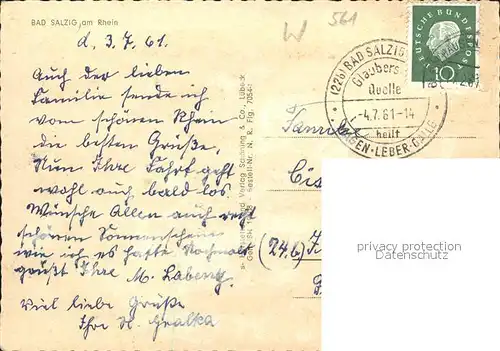 BAD SALZIG am Rhein
W 561
d. 3.7.61.
Auch der lieben
Familie sende ich
vom schönen Rhein
die besten Grüße,
Nun Ihre Fahrt geht
wohl auch bald los.
Wünsche Allen auch recht
schönen Sonnenschein
wie ich es hatte Nochmals
grüßt Ihre M. Labentz
Viel liebe Grüße
Ihre
Verlag Schöning & Co., Lübeck
Bestell-Nr. N. R.
DEUTSCHE BUNDESPOST
10
(22b) BAD SALZIG
Glaubers
Quelle
-4.7.61-14
hilft
MAGEN-LEBER-GALLE
Familie
(24b)
privacy protection
Datenschutz